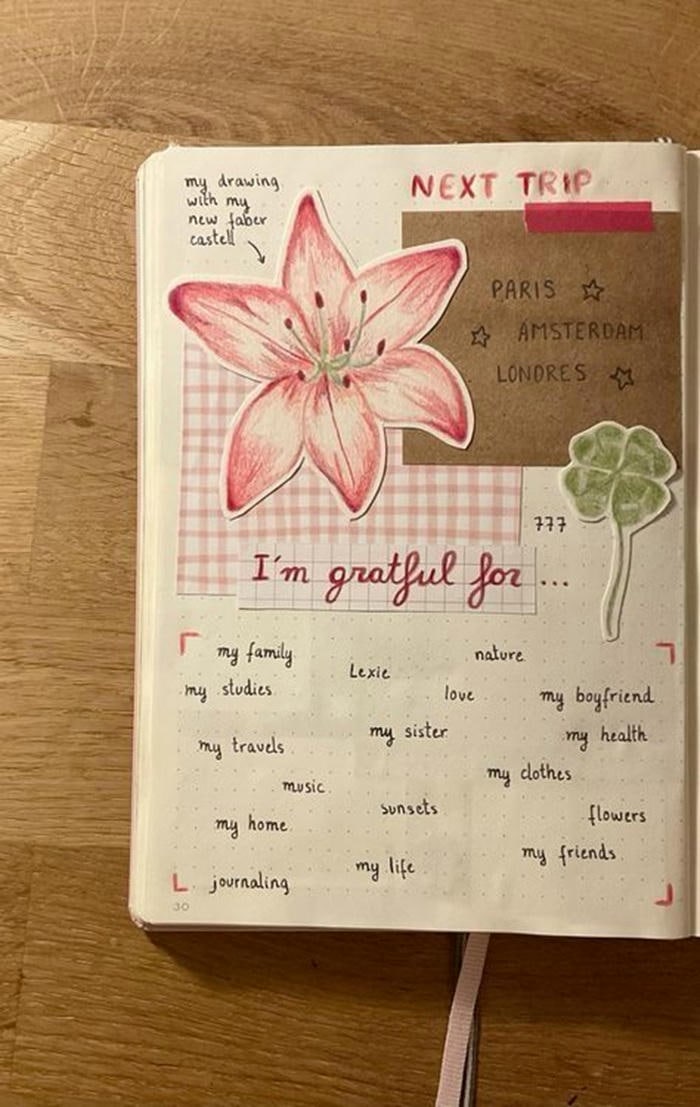 my drawing
with my
new faber
castell
NEXT TRIP
PARIS
AMSTERDAM
LONDRES
777
I'm gratful for...
my family
Lexie
nature
my studies
love
my boyfriend
my travels
my sister
my health
music
my clothes
my home
sunsets
flowers
my life
my friends
journaling
30